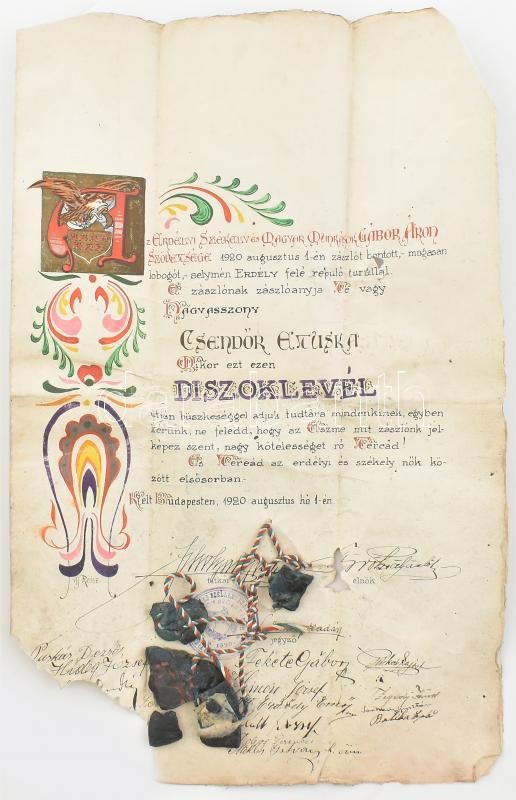 Az Erdélyi Székely és Magyar Munkások Gábor Áron
Szövetsége 1920 augusztus 1-én zászlót bontott,- magasan
lobogót,- selymén Erdély felé repülő turullal.
És zászlónak zászlóanyja Te vagy
Nagyasszony
Csendőr Etuska
Mikor ezt ezen
DISZOKLEVÉL
útján büszkeséggel adjuk tudtára mindenkinek, egyben
kérünk, ne feledd, hogy az Eszme mit zászlónk jel-
képez szent, nagy kötelességet ró Tereád!
És Tereád az erdélyi és székely nők kö-
zött elsősorban.-
Kelt Budapesten, 1920 augusztus hó 1-én
titkár
elnök
jegyző
Puskás Dezső
Hideg József
Fekete Gábor
Simon József
Erdély Ernő
Miklós István